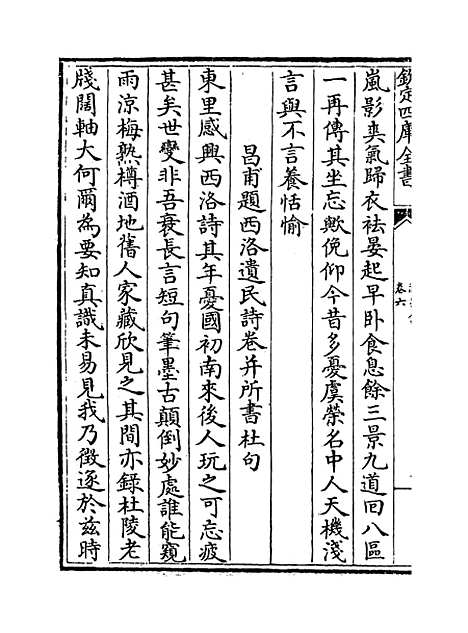 欽定四庫全書
卷六
嵐影爽氣歸衣袪晏起早卧食息餘三景九道回八區
一再傳其坐忘歟俛仰今昔多憂虞榮名中人天機淺
言與不言養恬愉
昌甫題西洛遺民詩卷并所書杜句
東里感興西洛詩其年憂國初南來後人玩之可忘疲
甚矣世變非吾衰長言短句筆墨古顛倒妙處誰能窺
雨涼梅熟樽酒地舊人家藏欣見之其間亦錄杜陵老
牋闊軸大何爾為要知真識未易見我乃徵逐於兹時